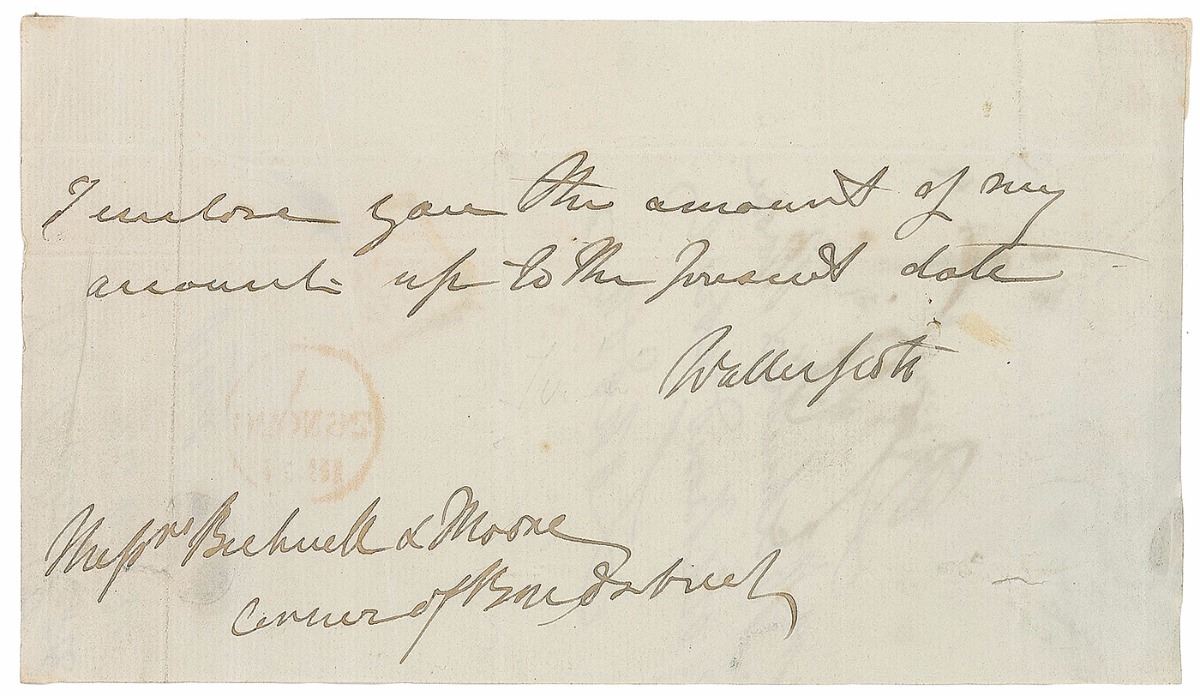 I enclose you the amount of my
account up to the present date
Walter Scott
Messrs Bicknell & Moore
corner of Bond street